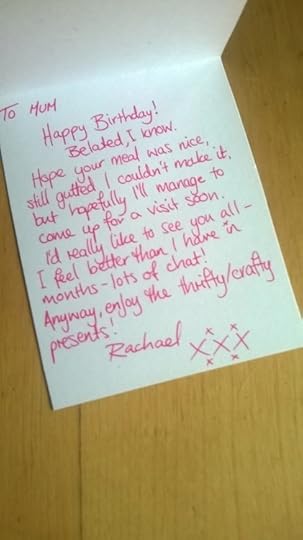 TO MUM
Happy Birthday!
Belated, I know.
Hope your meal was nice,
still gutted I couldn't make it,
but hopefully I'll manage to
come up for a visit soon.
I'd really like to see you all -
I feel better than I have in
months - lots of chat!
Anyway, enjoy the thrifty/crafty
presents!
Rachael xxx